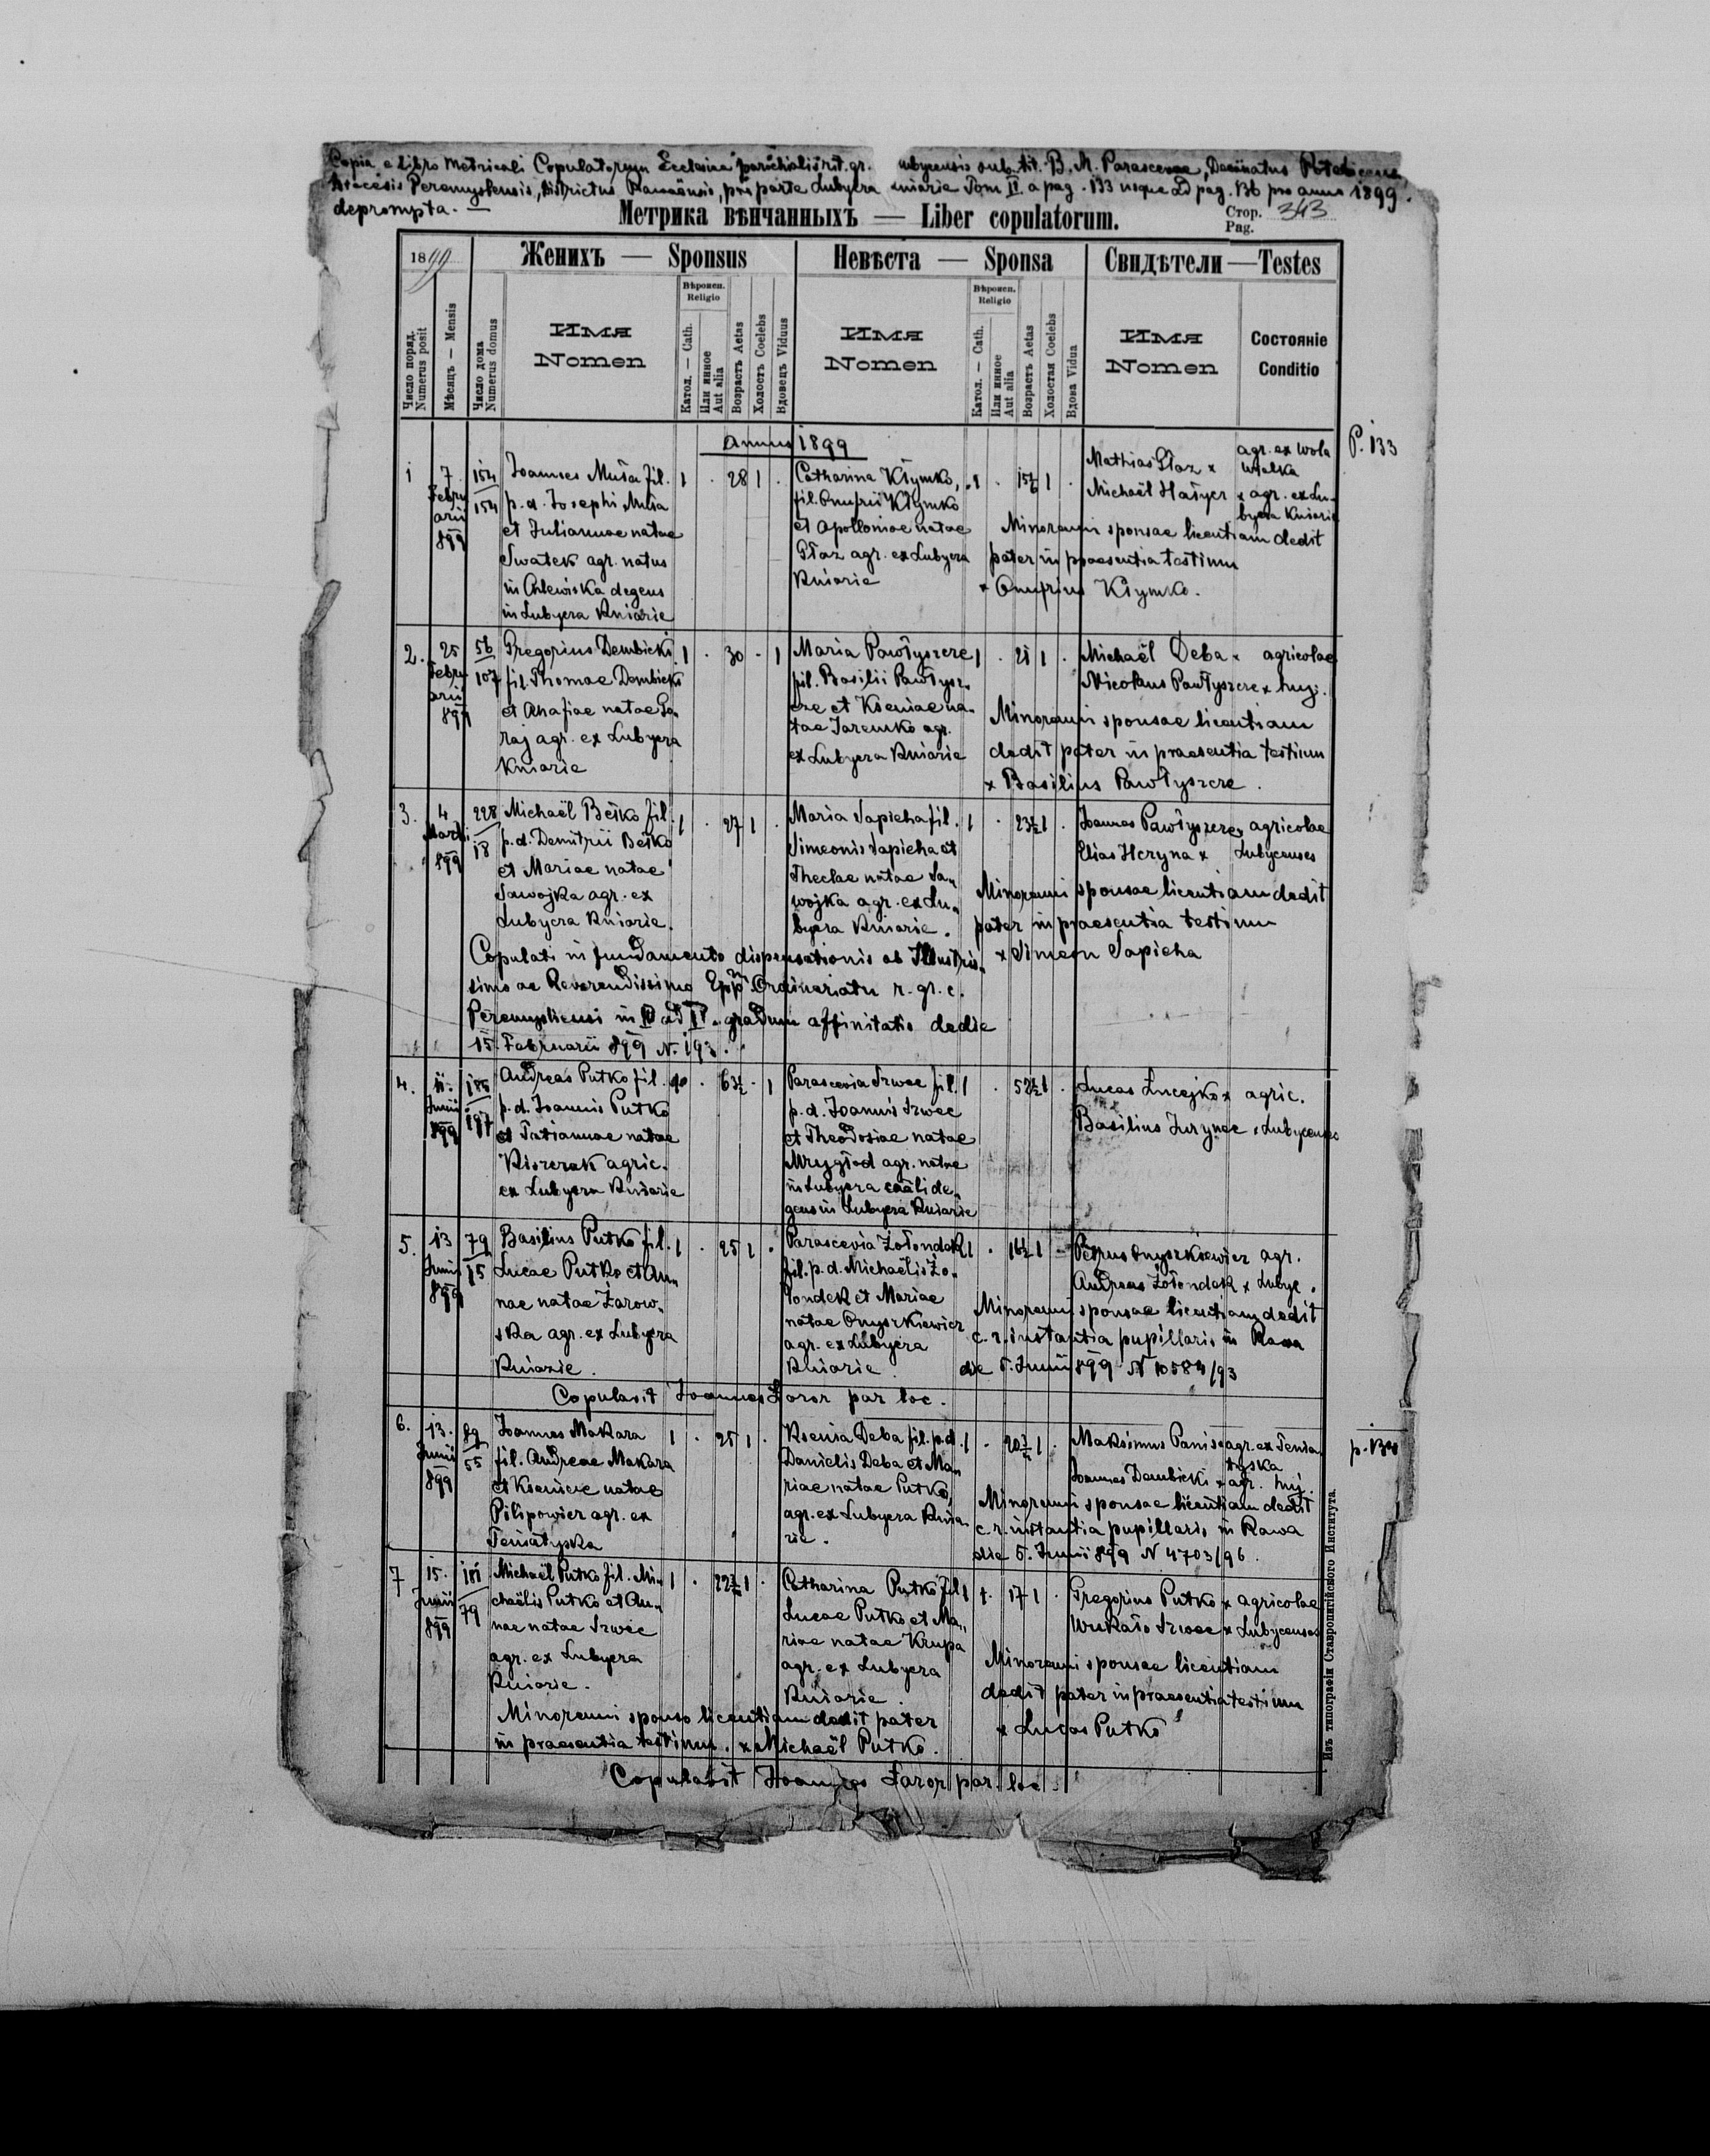 Copia e Libro Metricali Copulatorum Ecclesiae parochialis rit. gr. ubycensis sub. tit. B. M. Parascevae, Decanatus
Diecesis Peremysliensis, districtus Ravaënsis, pro parte Lubycza niazie Tom II. a pag. 133 usque ad pag. 136 pro anno 1899.
deprompta. —
Метрика вѣнчанныхъ — Liber copulatorum.
Стор. Pag. 343
1899
Женихъ — Sponsus
Невѣста — Sponsa
Свидѣтели — Testes
Число поряд. Numerus posit
Мѣсяцъ — Mensis
Число дома Numerus domus
Имя Nomen
Вѣроисп. Religio
Катол. — Cath.
Или инное Aut alia
Возрастъ Aetas
Холостъ Coelebs
Вдовецъ Viduus
Имя Nomen
Вѣроисп. Religio
Катол. — Cath.
Или инное Aut alia
Возрастъ Aetas
Холостая Coelebs
Вдова Vidua
Имя Nomen
Состояніе Conditio
Annus 1899
P. 133
1
7 Febru arii 899
154 154
Joannes Musa fil.
p. d. Josephi Musa
et Juliannae natae
Swatek agr. natus
in Chlewiska degens
in Lubycza Kniazie
1 . 28 1 .
Catharina Kłymko,
fil. Onufrii Kłymko
et Apolloniae natae
Głaz agr. ex Lubycza
Kniazie
Mathias Głaz x agr. ex Wola
Wielka
Michaël Hałycz x agr. ex Lu-
bycza Kniazie
Minorenni sponsae licentiam dedit
pater in praesentia testium
x Onufrius Kłymko.
2.
25 Febru arii 899
56 107
Gregorius Dembicki
fil. Thomae Dembicki
et Anafiae natae Go-
raj agr. ex Lubycza
Kniazie
1 . 30 . 1
Maria Pawłyszcze
fil. Basilii Pawłysz-
cze et Kseniae na-
tae Jaremko agr.
ex Lubycza Kniazie
1 . 21 1 .
Michaël Deba x agricolae
Nicolaus Pawłyszcze x huj.
Minorenni sponsae licentiam
dedit pater in praesentia testium
x Basilius Pawłyszcze.
3.
4 Martii 899
228 18
Michaël Bełko fil.
p. d. Demitrii Bełko
et Mariae natae
Sawojka agr. ex
Lubycza Kniazie.
1 . 27 1 .
Maria Sapieha fil.
Simeonis Sapieha et
Theclae natae Sa-
wojka agr. ex Lu-
bycza Kniazie.
1 . 23½ 1 .
Joannes Pawłyszcze x agricolae
Elias Heryna x Lubycenses
Minorenni sponsae licentiam dedit
pater in praesentia testium
x Simeon Sapieha
Copulati in fundamento dispensationis ab Illustris-
simo ac Reverendissimo Epp. Ordinariatu r. gr. c.
Peremysliensi in III ad IV. gradum affinitatis dedie
15. Februarii 899 N. 193.
4.
11. Junii 899
185 197
Andreas Putko fil.
p. d. Joannis Putko
et Tatiannae natae
Kiszczak agric.
ex Lubycza Kniazie
63½ . 1
Parascevia Szwec fil.
p. d. Joannis Szwec
et Theodosiae natae
Mryglod agr. natae
in Lubycza de-
gens in Lubycza Kniazie
1 . 52½ 1 .
Lucas Lucejko x agric.
Basilius Jurynec x Lubycenses
5.
13 Junii 899
79 15
Basilius Putko fil.
Lucae Putko et An-
nae natae Żarow-
ska agr. ex Lubycza
Kniazie.
1 . 25 1 .
Parascevia Żołondek
fil. p. d. Michaëlis Żo-
łondek et Mariae
natae Onyszkiewicz
agr. ex Lubycza
Kniazie
1 . 16½ 1 .
Petrus Onyszkiewicz agr.
Andreas Żołondek x Lubyc.
Minorenni sponsae licentiam dedit
c. r. instantia pupillaris in Rawa
die 5. Junii 899 N 10584/93
Copulavit Joannes Łoroz par loc.
6.
13. Junii 899
89 55
Joannes Makara
fil. Andreae Makara
et Kseniae natae
Pilipowicz agr. ex
Teniatyska
1 . 25 1 .
Ksenia Deba fil. p. d.
Danielis Deba et Ma-
riae natae Putko,
agr. ex Lubycza Knia-
zie.
1 . 20½ 1 .
Maksimus Panis agr. ex Tenia
tyska
Joannes Dembicki x agr. huj.
Minorenni sponsae licentiam dedit
c. r. instantia pupillaris in Rawa
die 5. Junii 899 N 4703/96.
7
15. Junii 899
181 79
Michaël Putko fil. Mi-
chaëlis Putko et An-
nae natae Szwec
agr. ex Lubycza
Kniazie.
1 . 22½ 1 .
Catharina Putko fil.
Lucae Putko et Ma-
riae natae Krupa
agr. ex Lubycza
Kniazie.
17 1 .
Gregorius Putko x agricolae
Wukało Szwec x Lubycenses
Minorenni sponsae licentiam
dedit pater in praesentia testium
x Lucas Putko
Minorenni sponso licentiam dedit pater
in praesentia testium. x Michaël Putko.
Copulavit Joannes Łoroz par. loc.
Изъ типографіи Ставропигійского Института.